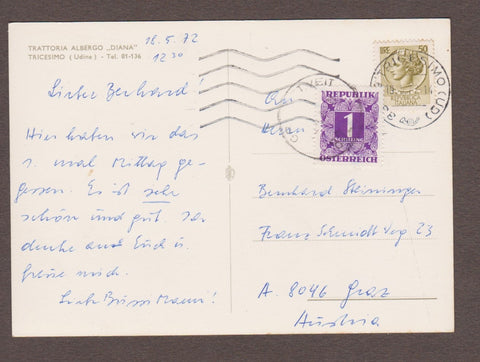 TRATTORIA ALBERGO „DIANA"
TRICESIMO (Udine) - Tel. 81-136
18.5.72
12 30
Lieber Bernhard!
Hier haben wir das
1. mal Mittag ge-
gessen. Es ist sehr
schön und gut. Ich
denke an Euch u.
freue mich.
Liebe Bussi Mami!
50
TRICESIMO (UD)
REPUBLIK
1
SCHILLING
ÖSTERREICH
Herrn
Bernhard Steininger
Franz Schmidt Weg 23
A. 8046 Graz
Austria